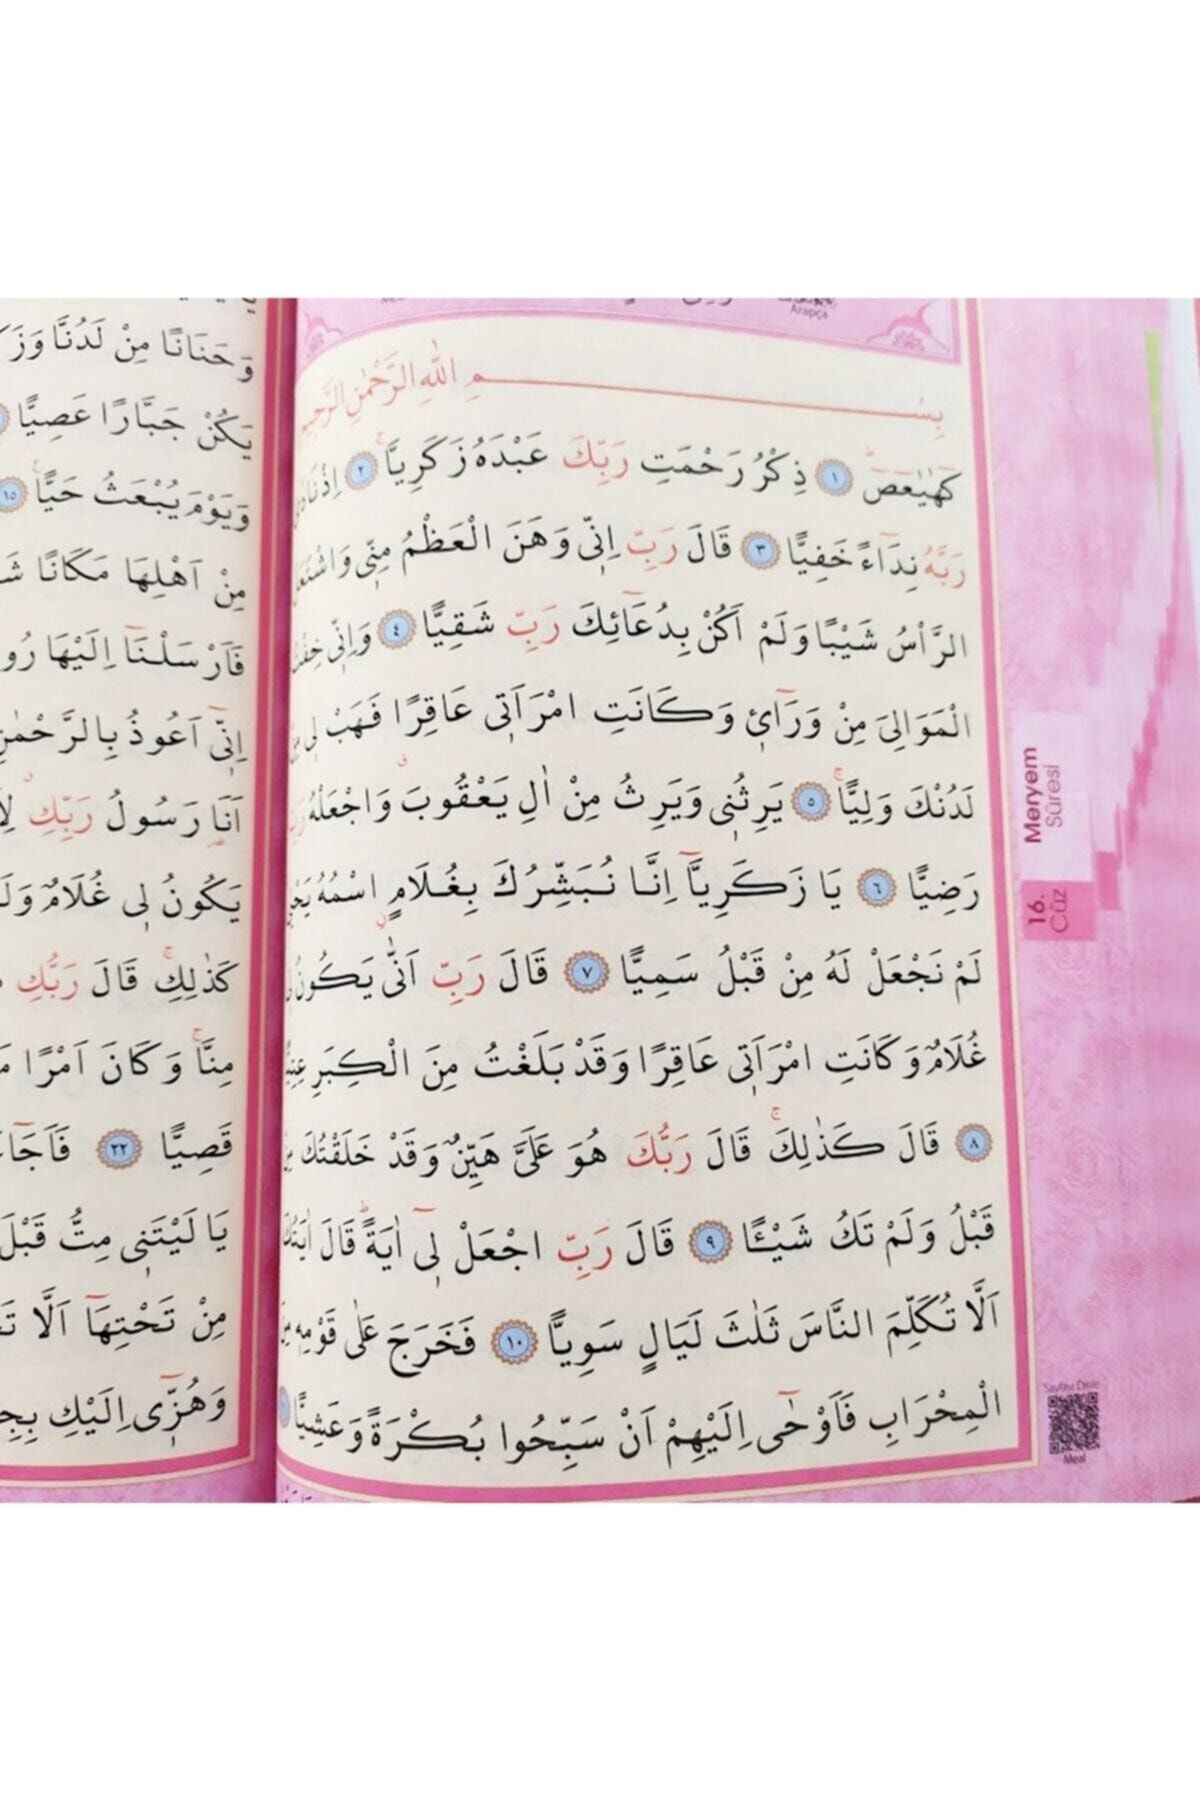 Arapça
بِسْمِ اللّٰهِ الرَّحْمٰنِ الرَّحِيمِ
كٓهٰيٰعٓصٓ ﴿١﴾ ذِكْرُ رَحْمَتِ رَبِّكَ عَبْدَهُ زَكَرِيَّاۚ ﴿٢﴾ اِذْ نَادٰى
رَبَّهُ نِدَٓاءً خَفِيًّا ﴿٣﴾ قَالَ رَبِّ اِنّ۪ي وَهَنَ الْعَظْمُ مِنّ۪ي وَاشْتَعَلَ
الرَّأْسُ شَيْبًا وَلَمْ اَكُنْ بِدُعَٓائِكَ رَبِّ شَقِيًّا ﴿٤﴾ وَاِنّ۪ي خِفْتُ
الْمَوَالِيَ مِنْ وَرَٓائ۪ي وَكَانَتِ امْرَاَت۪ي عَاقِرًا فَهَبْ ل۪ي مِنْ
لَدُنْكَ وَلِيًّاۙ ﴿٥﴾ يَرِثُن۪ي وَيَرِثُ مِنْ اٰلِ يَعْقُوبَۗ وَاجْعَلْهُ
رَضِيًّا ﴿٦﴾ يَا زَكَرِيَّٓا اِنَّا نُبَشِّرُكَ بِغُلَامٍۨ اسْمُهُ يَحْيٰى
لَمْ نَجْعَلْ لَهُ مِنْ قَبْلُ سَمِيًّا ﴿٧﴾ قَالَ رَبِّ اَنّٰى يَكُونُ
غُلَامٌ وَكَانَتِ امْرَاَت۪ي عَاقِرًا وَقَدْ بَلَغْتُ مِنَ الْكِبَرِ عِتِيًّا
﴿٨﴾ قَالَ كَذٰلِكَۚ قَالَ رَبُّكَ هُوَ عَلَيَّ هَيِّنٌ وَقَدْ خَلَقْتُكَ مِنْ
قَبْلُ وَلَمْ تَكُ شَيْـًٔا ﴿٩﴾ قَالَ رَبِّ اجْعَلْ ل۪ٓي اٰيَةًۜ قَالَ اٰيَتُكَ
اَلَّا تُكَلِّمَ النَّاسَ ثَلٰثَ لَيَالٍ سَوِيًّا ﴿١٠﴾ فَخَرَجَ عَلٰى قَوْمِه۪ مِنَ
الْمِحْرَابِ فَاَوْحٰٓى اِلَيْهِمْ اَنْ سَبِّحُوا بُكْرَةً وَعَشِيًّا
Meryem
Sûresi
16.
Cüz
Sayfayı Dinle
Meal
وَحَنَانًا مِنْ لَدُنَّا
يَكُنْ جَبَّارًا عَصِيًّا
وَيَوْمَ يُبْعَثُ حَيًّا۟ ﴿١٥﴾
مِنْ اَهْلِهَا مَكَانًا
فَاَرْسَلْنَٓا اِلَيْهَا
اِنّ۪ٓي اَعُوذُ بِالرَّحْمٰنِ
اَنَا۬ رَسُولُ رَبِّكِ
يَكُونُ ل۪ي غُلَامٌ
كَذٰلِكِۚ قَالَ رَبُّكِ
مِنَّاۚ وَكَانَ اَمْرًا
قَصِيًّا ﴿٢٢﴾
يَا لَيْتَن۪ي مِتُّ قَبْلَ
مِنْ تَحْتِهَٓا اَلَّا
وَهُزّ۪ٓي اِلَيْكِ